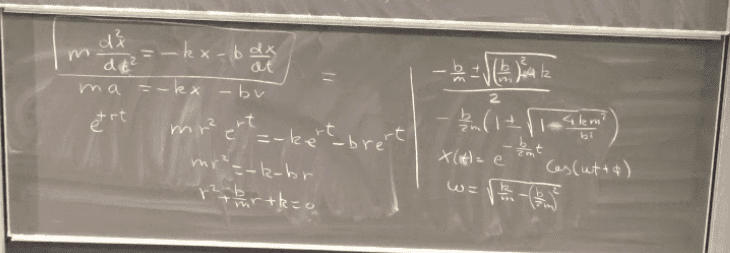 m d²x/dt² = -kx - b dx/dt
ma = -kx - bv
e^{+rt} mr² e^{rt} = -ke^{rt} - bre^{rt}
mr² = -k - br
r² + b/m r + k = 0
=
(-b/m ± √((b/m)² - 4k))/2
-b/2m (1 ± √(1 - 4km²/b²))
x(t) = e^{-b/2m t} cos(ωt + φ)
ω = √(k/m - (b/2m)²)